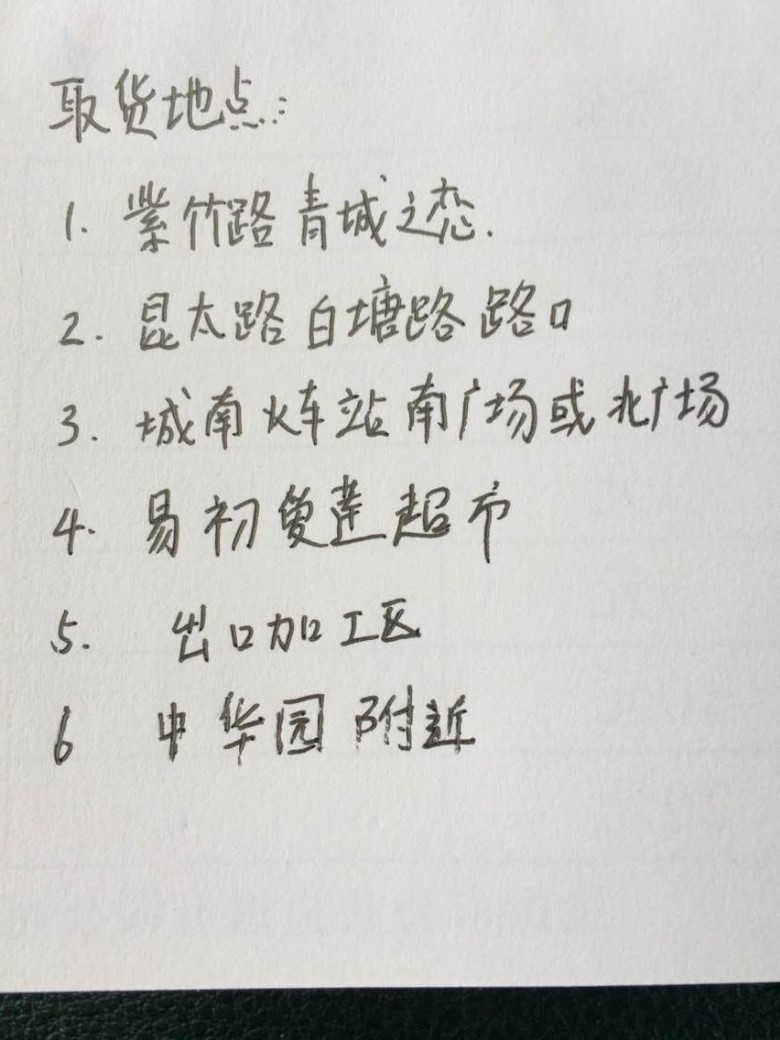 取货地点:
1. 紫竹路青城之恋.
2. 昆太路白塘路路口
3. 城南火车站南广场或北广场
4. 易初爱莲超市
5. 出口加工区
6 中华园附近